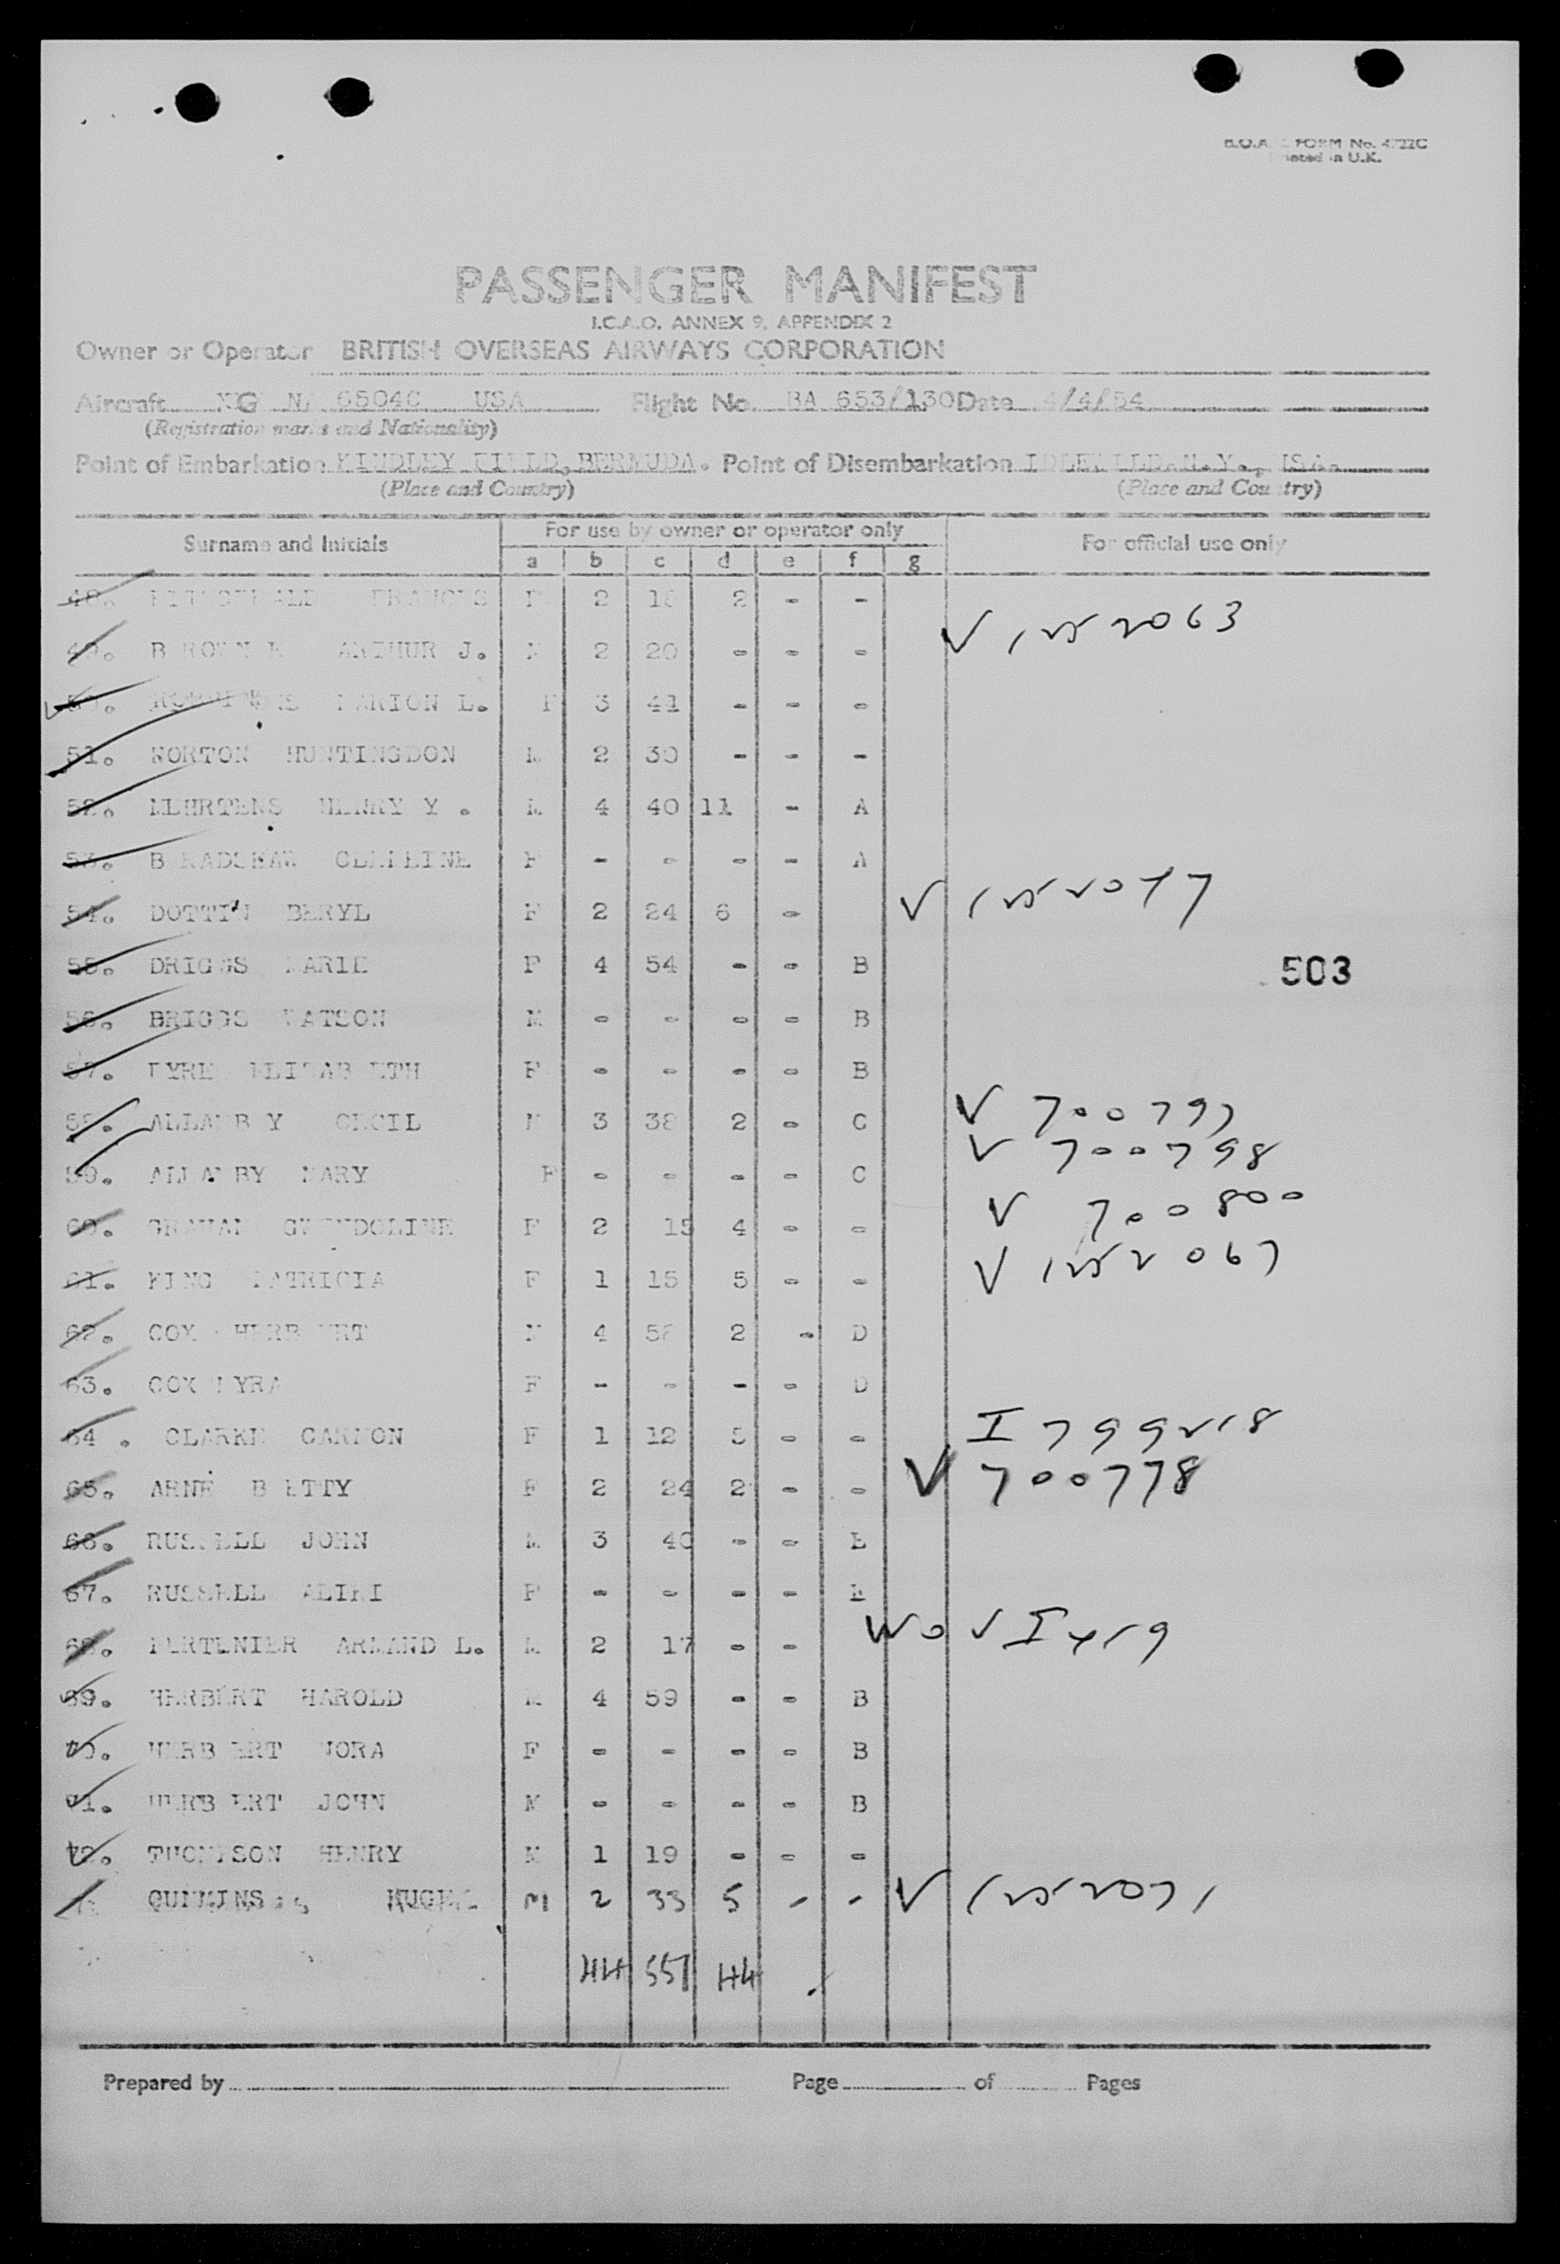 FORM No.
Printed in U.K.
PASSENGER MANIFEST
I.C.A.O. ANNEX 9, APPENDIX 2
Owner or Operator BRITISH OVERSEAS AIRWAYS CORPORATION
Aircraft USA Flight No. BA 653/130 Date 4/4/54
(Registration marks and Nationality)
Point of Embarkation KINDLEY FIELD, BERMUDA. Point of Disembarkation IDLEWILD, N.Y., USA.
(Place and Country) (Place and Country)
Surname and Initials For use by owner or operator only For official use only
a b c d e f g
48. FITZGERALD FRANCES F 2 2 - -
49. B ROWN E ARTHUR J. M 2 20 - - - V 1252063
50. MARION L. F 3 41 - - -
51. NORTON HUNTINGDON M 2 30 - - -
52. MEHRTENS HENRY Y . M 4 40 11 - A
53. B RADSHAW F - - - - A
54. DOTTIN BERYL F 2 24 6 - V
55. DRIGGS MARIE F 4 54 - - B
503
56. BRIGGS WATSON M - - - - B
57. ELIZAB ETH F - - - - B
58. ALLANB Y CECIL M 3 38 2 - C V 700797
59. ALLANBY MARY F - - - - C V 700798
60. GRAHAM GWENDOLINE F 2 15 4 - - V 700800
61. KING PATRICIA F 1 15 5 - - V 1252067
62. COX HERB ERT M 4 58 2 - D
63. COX MYRA F - - - - D
64 . CLARKE F 1 12 5 - - I 799218
65. ARNE B ETTY F 2 24 2 - - V 700778
66. RUSSELL JOHN M 3 40 - - E
67. RUSSELL F - - - - E
68. ARMAND L. M 2 17 - -
69. HERBERT HAROLD M 4 59 - - B
70. HERB ERT NORA F - - - - B
71. HERB ERT JOHN M - - - - B
72. THOMPSON HENRY M 1 19 - - -
M 2 33 5 - - V 1252071
44 557 44
Prepared by Page of Pages